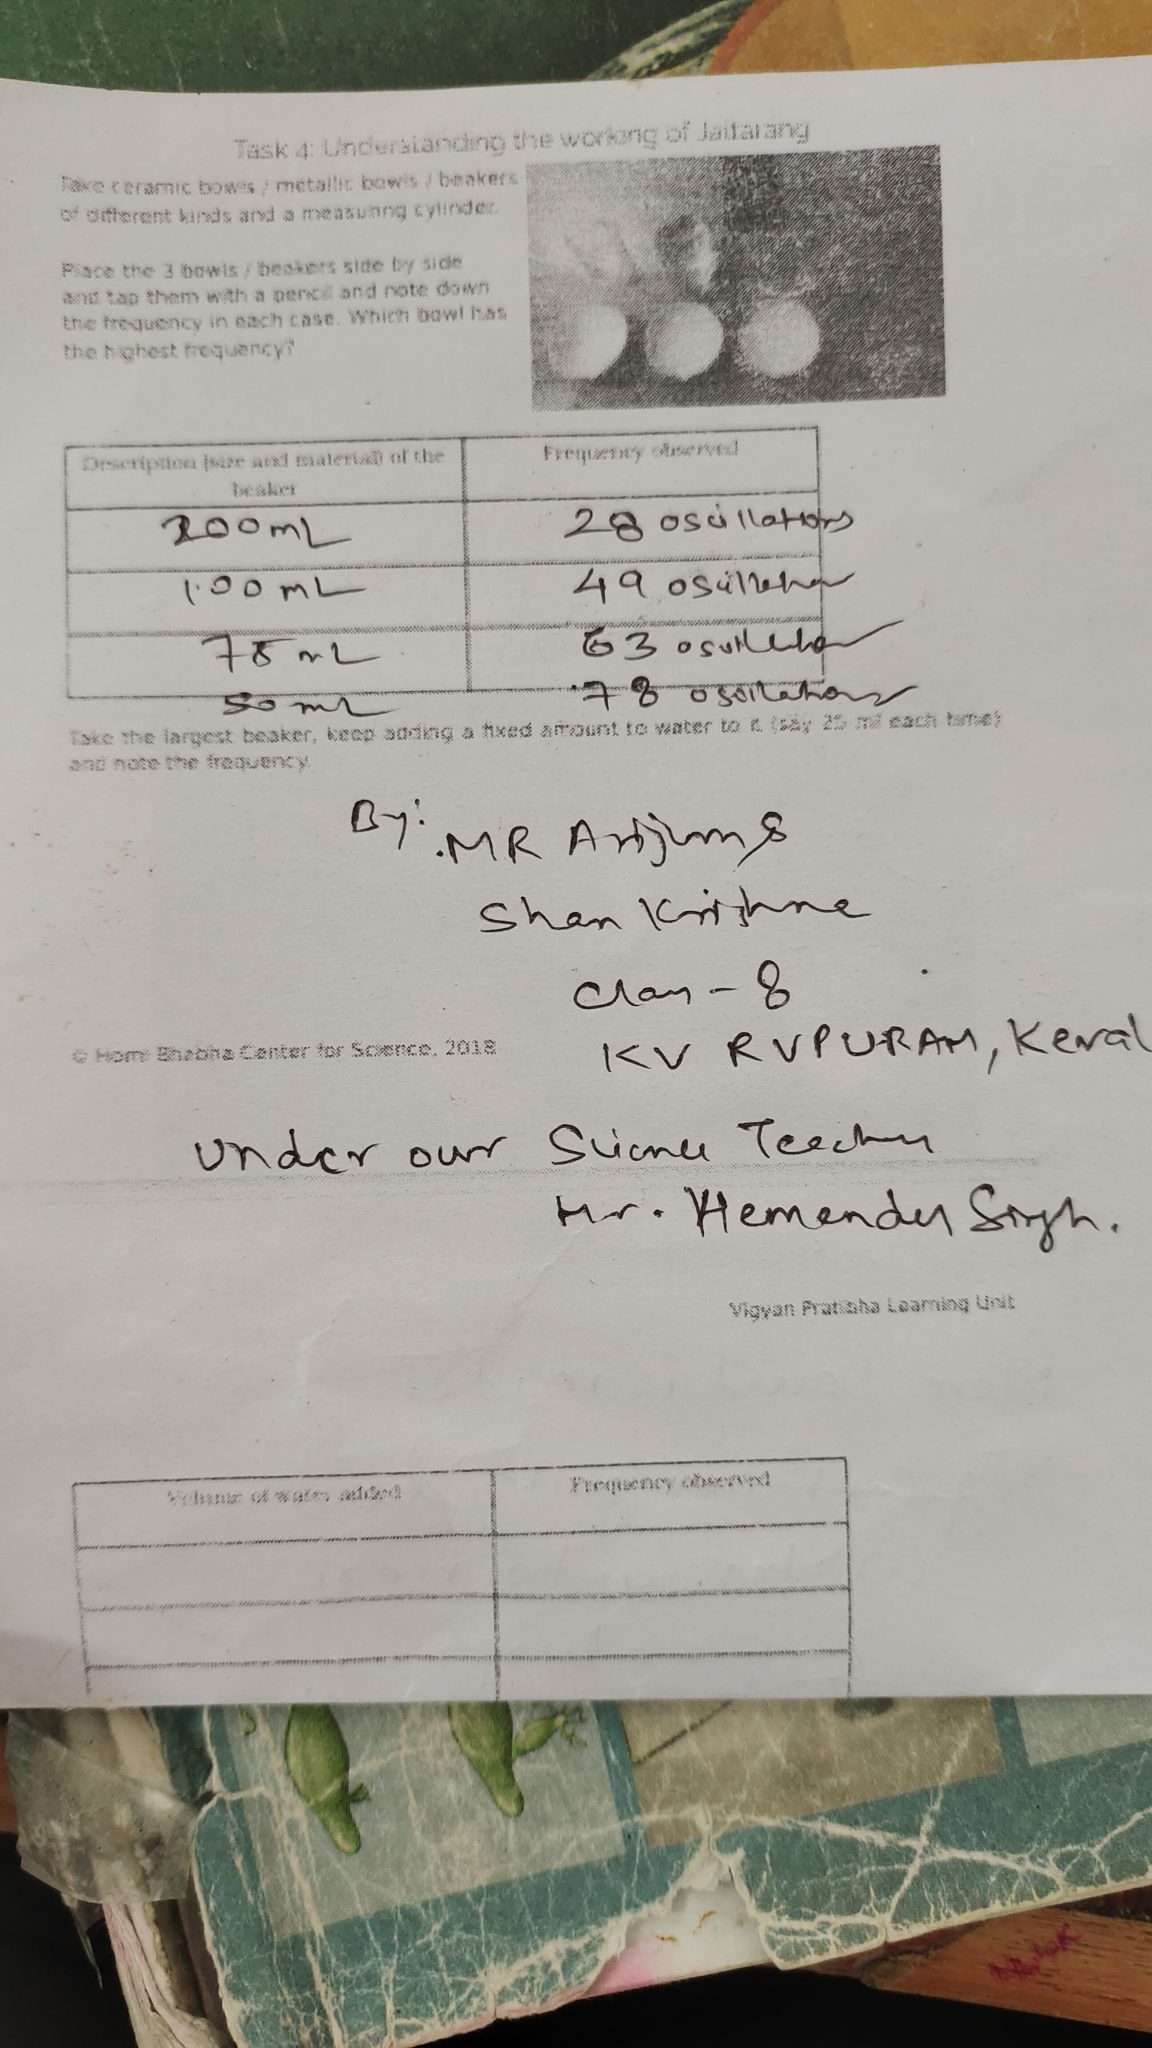 Task 4: Understanding the working of Jaltarang
Take ceramic bowls / metallic bowls / beakers
of different kinds and a measuring cylinder.
Place the 3 bowls / beakers side by side
and tap them with a pencil and note down
the frequency in each case. Which bowl has
the highest frequency?
Description (size and material) of the
beaker
Frequency observed
200mL
28 oscillations
100 mL
49 oscillation
75 mL
63 oscillation
50 mL
78 oscillations
Take the largest beaker, keep adding a fixed amount to water to it (say 25 ml each time)
and note the frequency
By:
MR Arijun &
Shan Krishna
Class - 8
© Homi Bhabha Center for Science, 2018
KV RVPURAM, Keral
Under our Science Teacher
Mr. Hemender Singh.
Vigyan Pratibha Learning Unit
Volume of water added
Frequency observed